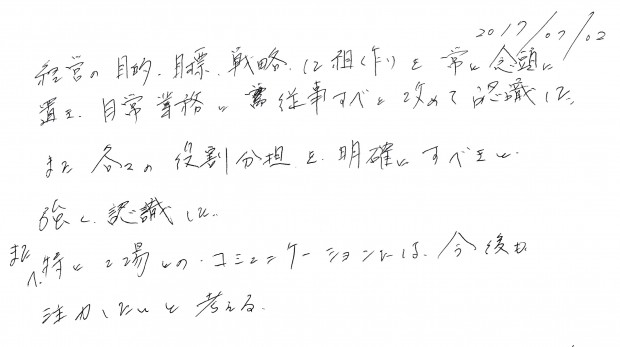 2017/07/02
経営の目的、目標、戦略、仕組(作り)を常に念頭に
置き、日常業務に従事すべきと改めて認識した。
また各々の役割分担を明確にすべきと
強く認識した。
また、特に工場との、コミュニケーションには、今後も
注力したいと考える。